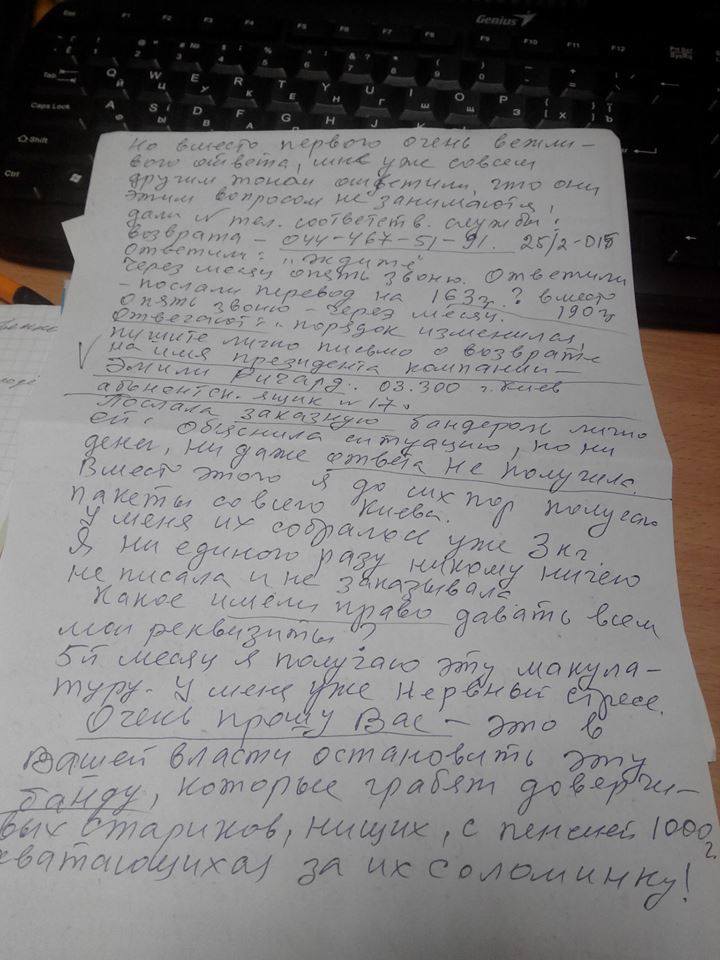 Genius
Но вместо первого очень вежли-
вого ответа, мне уже совсем
другим тоном ответили, что они
этим вопросом не занимаются,
дали № тел. соответств. службы
возврата - 044-467-51-91. 25/2-015
Ответили: "Ждите"
Через месяц опять звоню. Ответили
- послали перевод на 163г.? вместо
190г
Опять звоню - через месяц.
Отвечают: "порядок изменился,
пишите лично письмо о возврате
на имя президента компании -
Эмили Ричард. 03.300 г. Киев
абонентск. ящик № 17.
Послала заказную бандероль лично
ей. Объяснила ситуацию, но ни
денег, ни даже ответа не получила.
Вместо этого я до сих пор получаю
пакеты со всего Киева.
У меня их собралось уже 3 кг.
Я ни единого разу никому ничего
не писала и не заказывала
Какое имели право давать всем
мои реквизиты?
5й месяц я получаю эту макула-
туру. У меня уже нервный стресс.
Очень прошу Вас - это в
Вашей власти остановить эту
банду, которые грабят доверчи-
вых стариков, нищих, с пенсией 1000г.
хватающихся за их соломинку!